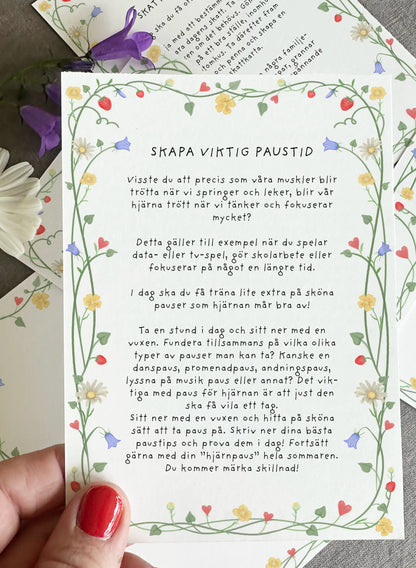 SKAT
ska du få
la med att bestämm
ara dagens skatt. Ta
ien om det behövs. Göm
på ett bra ställe, inomh
tomhus. Ta därefter fram
och penna och skapa en
skattkarta.
några familje-
par, grannar
pännande
SKAPA VIKTIG PAUSTID
Visste du att precis som våra muskler blir
trötta när vi springer och leker, blir vår
hjärna trött när vi tänker och fokuserar
mycket?
Detta gäller till exempel när du spelar
data- eller tv-spel, gör skolarbete eller
fokuserar på något en längre tid.
I dag ska du få träna lite extra på sköna
pauser som hjärnan mår bra av!
Ta en stund i dag och sitt ner med en
vuxen. Fundera tillsammans på vilka olika
typer av pauser man kan ta? Kanske en
danspaus, promenadpaus, andningspaus,
lyssna på musik paus eller annat? Det vik-
tiga med paus för hjärnan är att just den
ska få vila ett tag.
Sitt ner med en vuxen och hitta på sköna
sätt att ta paus på. Skriv ner dina bästa
paustips och prova dem i dag! Fortsätt
gärna med din "hjärnpaus" hela sommaren.
Du kommer märka skillnad!